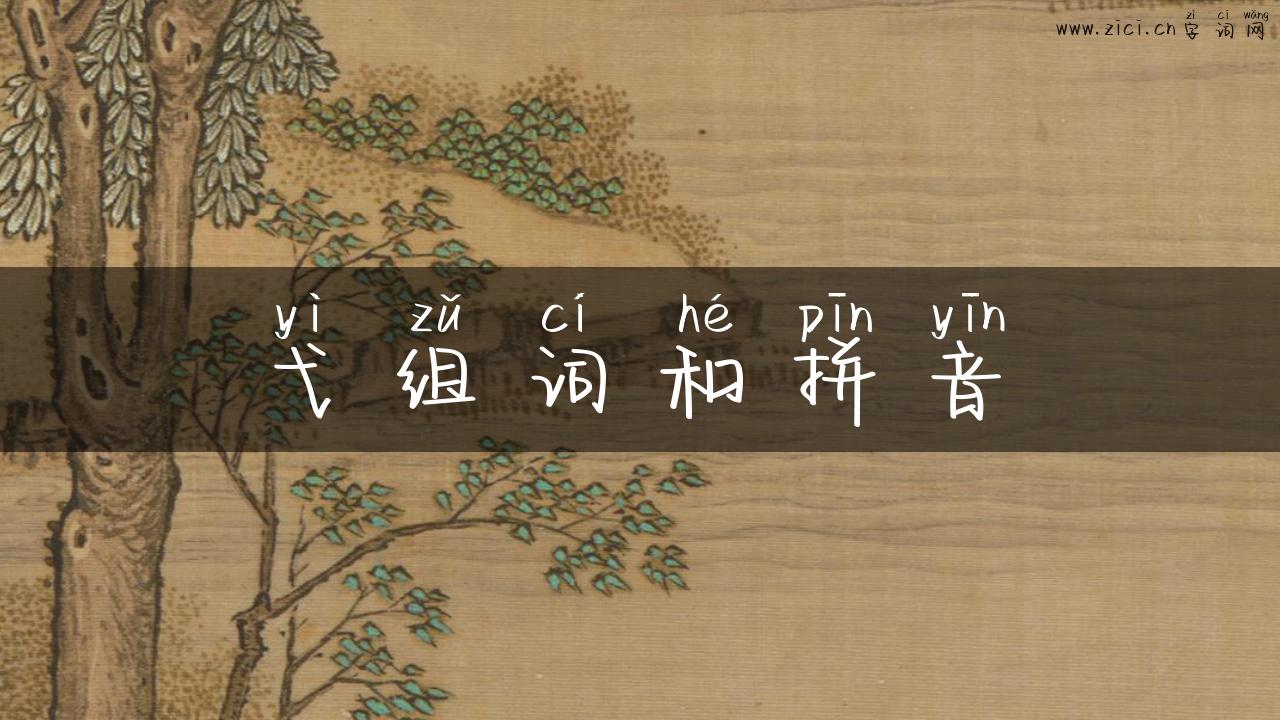 zì cí wǎng
www.zici.cn字词网
yì zǔ cí hé pīn yīn
弋组词和拼音